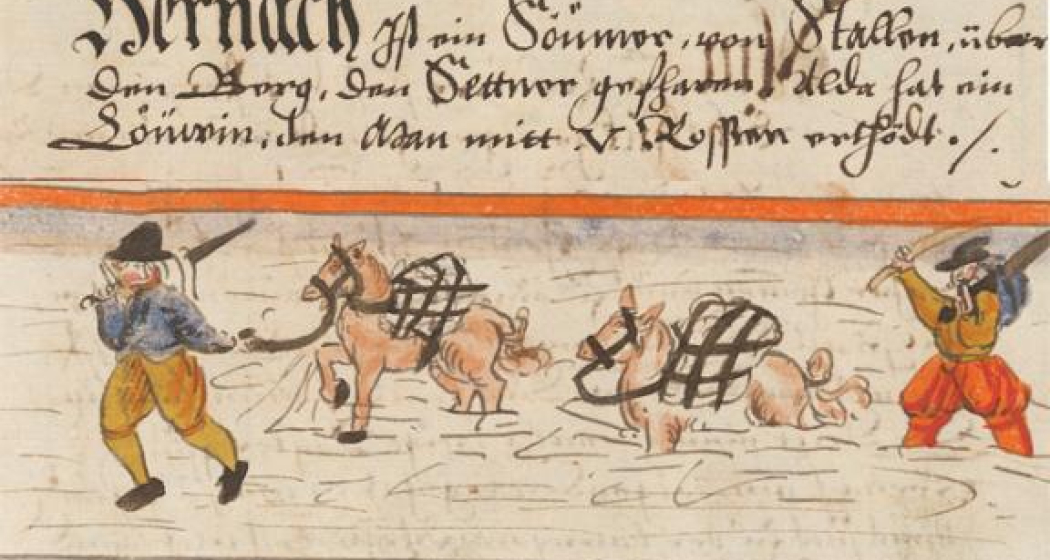 Hernach Ist ein Söümer, von Stallen, über
den Berg, den Settner gefharen, Alda hat ein
Löüwin, den Man mitt V Rossen erthödt ./.